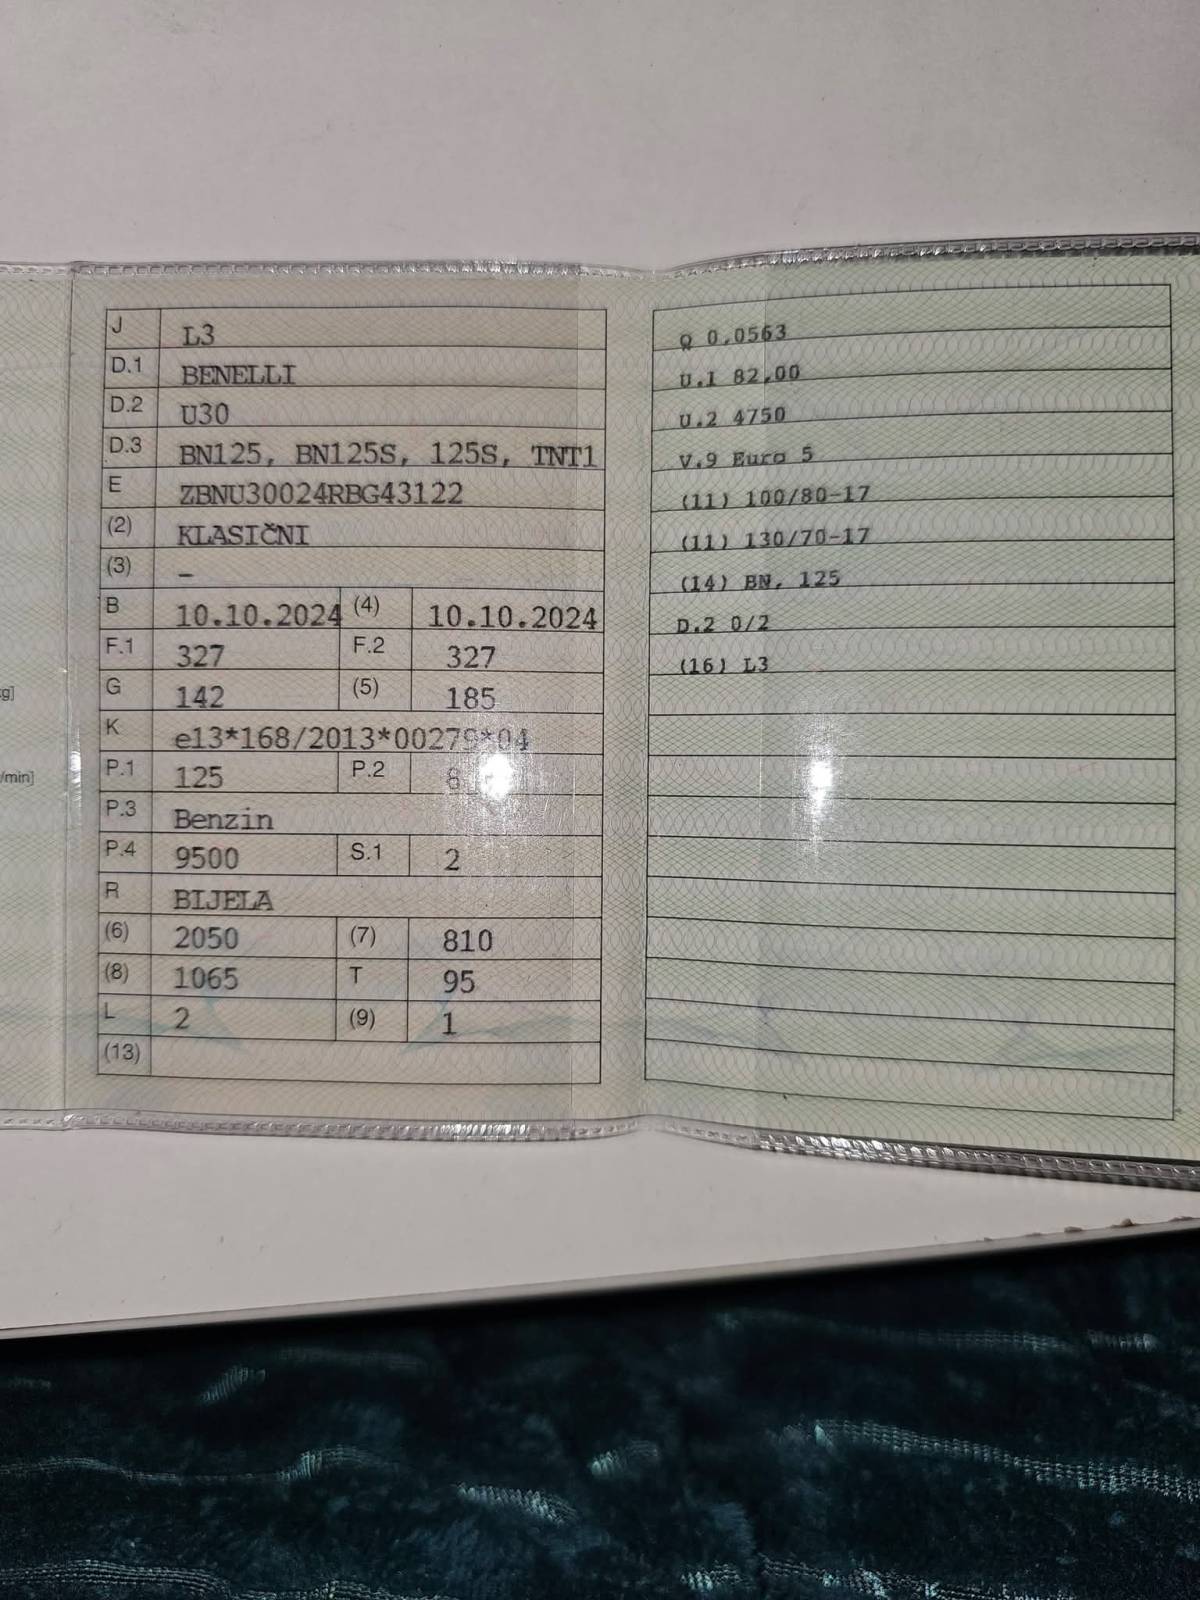 J L3
D.1 BENELLI
D.2 U30
D.3 BN125, BN125S, 125S, TNT1
E ZBNU30024RBG43122
(2) KLASIČNI
(3) –
B 10.10.2024 (4) 10.10.2024
F.1 327 F.2 327
G 142 (5) 185
K e13*168/2013*00279*04
P.1 125 P.2
P.3 Benzin
P.4 9500 S.1 2
R BIJELA
(6) 2050 (7) 810
(8) 1065 T 95
L 2 (9) 1
(13)
Q 0,0563
U.1 82,00
U.2 4750
V.9 Euro 5
(11) 100/80-17
(11) 130/70-17
(14) BN, 125
D.2 0/2
(16) L3
g]
/min]